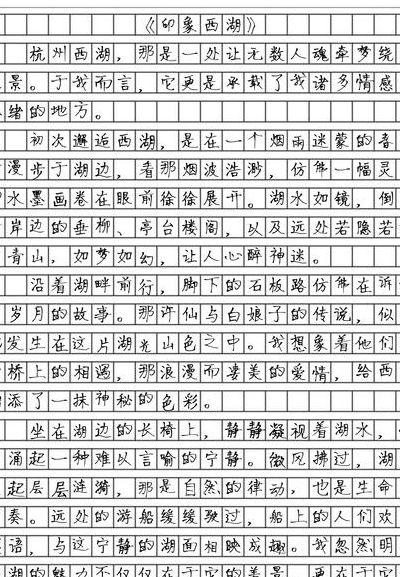 《印象西湖》
杭州西湖，那是一处让无数人魂牵梦绕
景。于我而言，它更是承载了我诸多情感
绪的地方。
初次邂逅西湖，是在一个烟雨迷蒙的春
漫步于湖边，看那烟波浩渺，仿佛一幅灵
水墨画卷在眼前徐徐展开。湖水如镜，倒
岸边的垂柳、亭台楼阁，以及远处若隐若
青山，如梦如幻，让人心醉神迷。
沿着湖畔前行，脚下的石板路仿佛在诉
岁月的故事。那许仙与白娘子的传说，似
发生在这片湖光山色之中。我想象着他们
桥上的相遇，那浪漫而凄美的爱情，给西
添了一抹神秘的色彩。
坐在湖边的长椅上，静静凝视着湖水，
涌起一种难以言喻的宁静。微风拂过，湖
起层层涟漪，那是自然的律动，也是生命
奏。远处的游船缓缓驶过，船上的人们欢
语，与这宁静的湖面相映成趣。我忽然明
湖的魅力不仅仅在于它的美景，更在于它